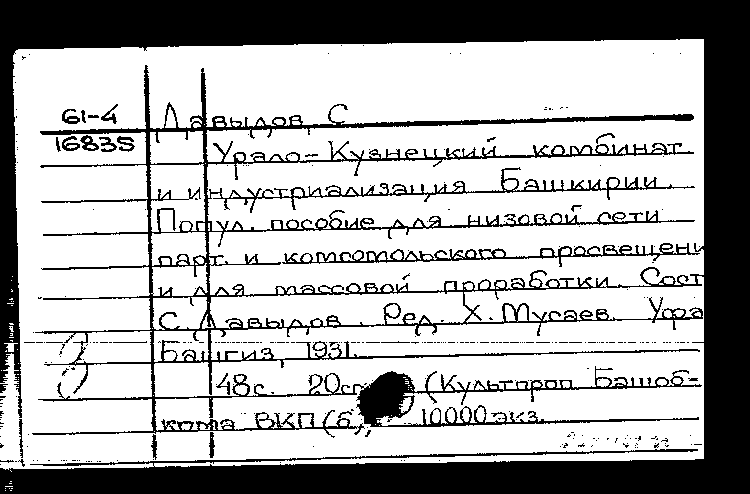 61-4
16835
Давыдов, С
Урало-Кузнецкий комбинат
и индустриализация Башкирии.
Попул. пособие для низовой сети
парт. и комсомольского просвещени
и для массовой проработки. Сост
С. Давыдов. Ред. Х. Мусаев. Уфа
Башгиз, 1931.
48с. 20см (Культпроп Башоб-
кома ВКП(б)) 10000 экз.
3